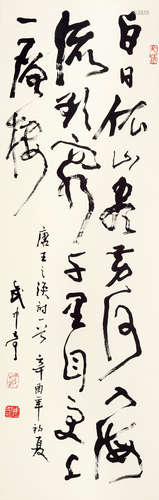 白日依山盡黄河入海
流欲窮千里目更上
一層樓
唐王之渙詩一首 辛酉年初夏
武中奇